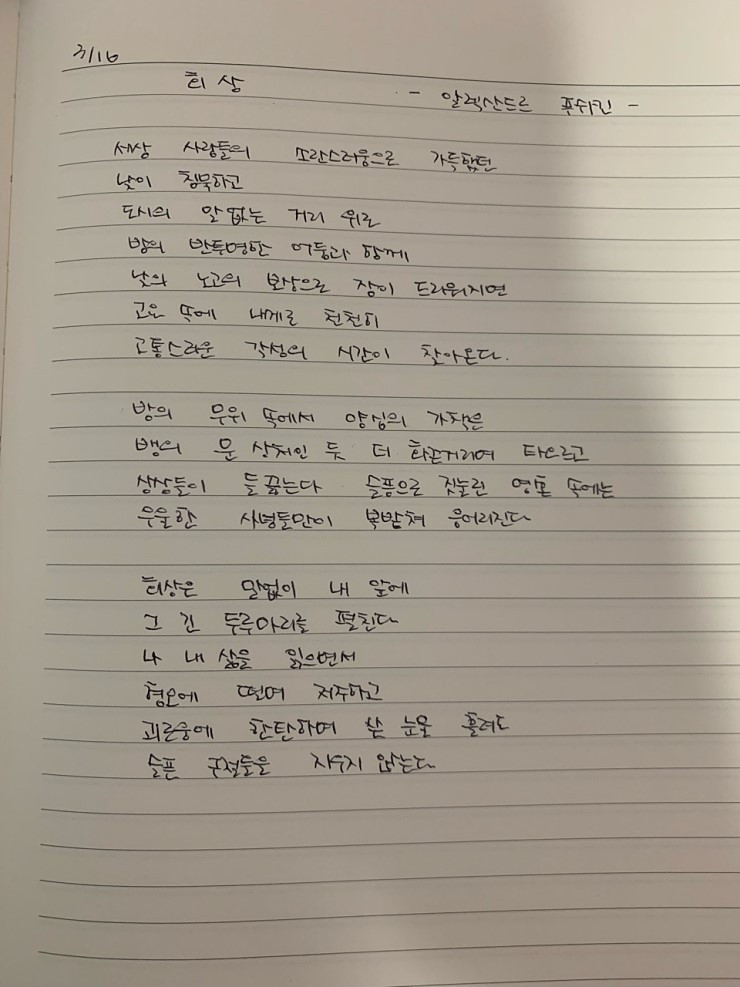 3/16
회상 - 알렉산드르 푸쉬킨 -
세상 사람들의 소란스러움으로 가득했던
낮이 침묵하고
도시의 말없는 거리 위로
밤의 반투명한 어둠과 함께
낮의 노고의 보상으로 잠이 드리워지면
고요 속에 내게로 천천히
고통스러운 각성의 시간이 찾아온다.
밤의 무위 속에서 양심의 가책은
뱀의 문 상처인 듯 더 화끈거리며 타오르고
상상들이 들끓는다 슬픔으로 짓눌린 영혼 속에는
우울한 사념들만이 북받쳐 응어리진다
회상은 말없이 내 앞에
그 긴 두루마리를 펼친다
나 내 삶을 읽으면서
혐오에 떨며 저주하고
괴로움에 한탄하며 쓴 눈물 흘려도
슬픈 구절들을 지우지 않는다